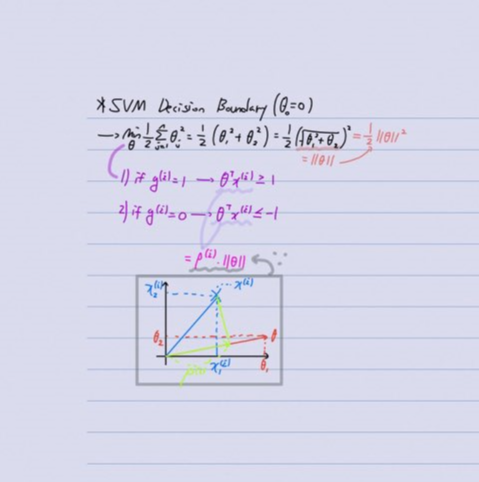 * SVM Decision Boundary (θ₀=0)
→ min_θ 1/2 Σ_{j=1}^{n} θ_j² = 1/2 (θ₁²+θ₂²) = 1/2 (√(θ₁²+θ₂²))² = 1/2 ||θ||²
= ||θ||
1) if y⁽ⁱ⁾=1 → θᵀx⁽ⁱ⁾ ≥ 1
2) if y⁽ⁱ⁾=0 → θᵀx⁽ⁱ⁾ ≤ -1
= p⁽ⁱ⁾·||θ||
x₂⁽ⁱ⁾ x⁽ⁱ⁾
θ₂ θ
x₁⁽ⁱ⁾ θ₁